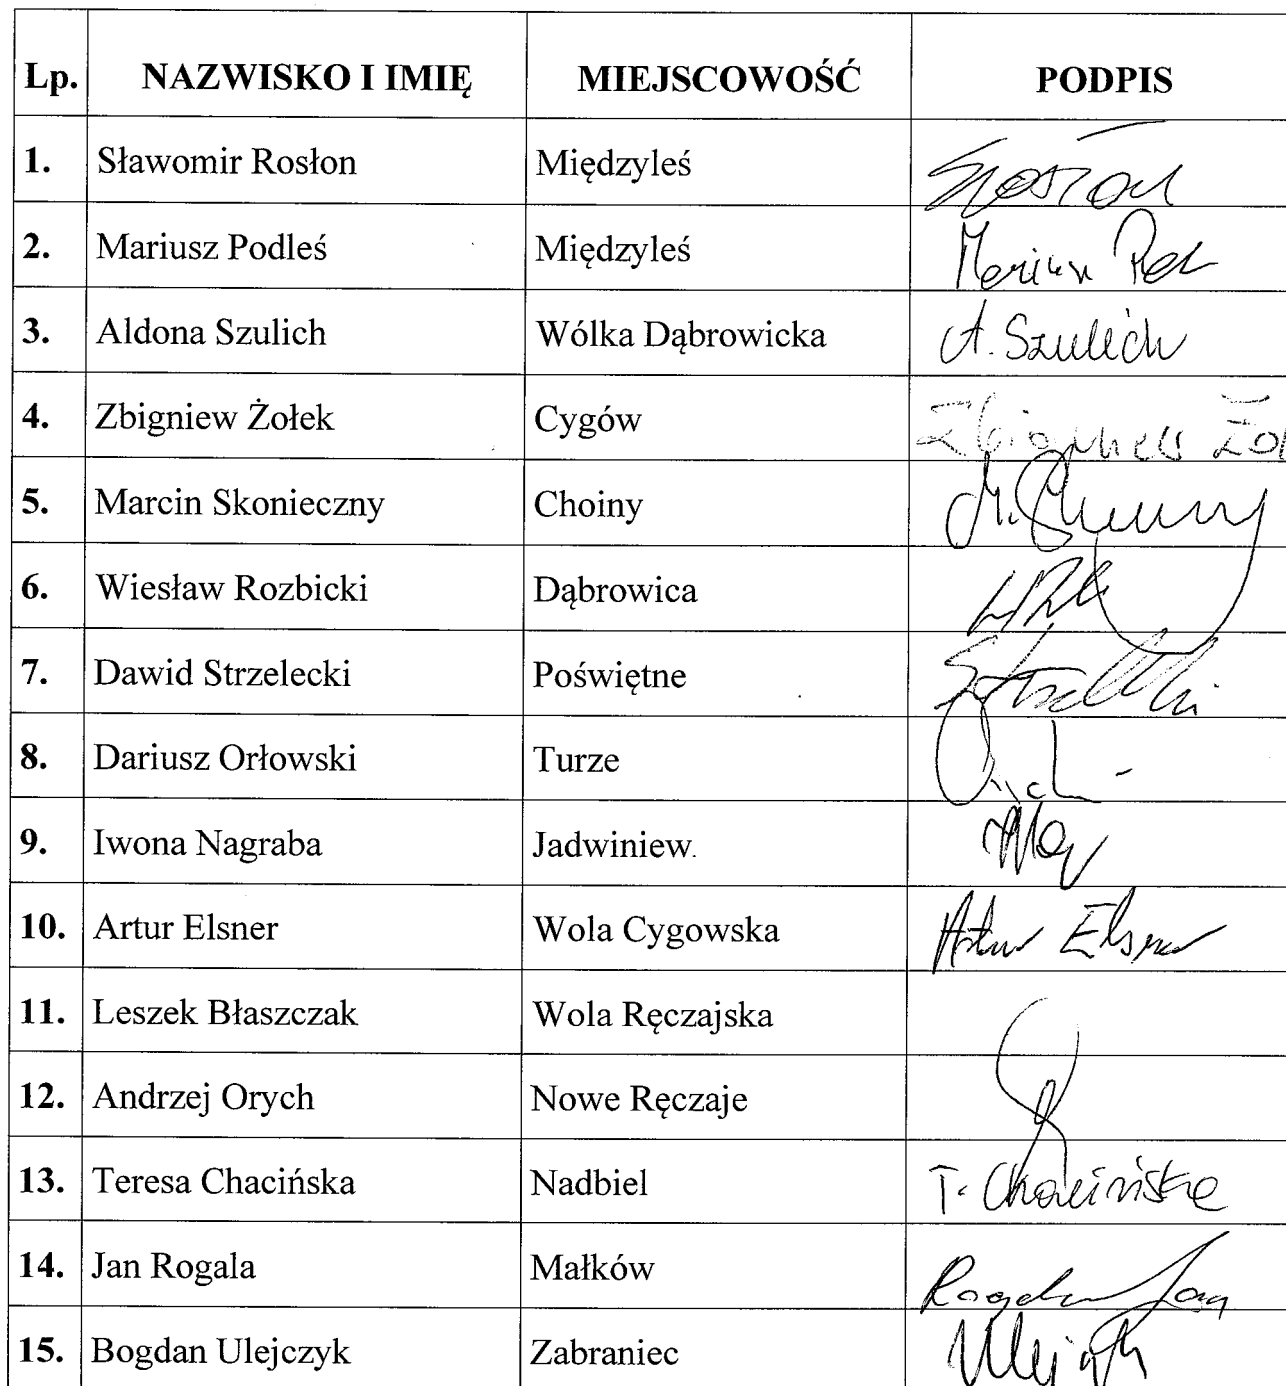 Lp. NAZWISKO I IMIĘ MIEJSCOWOŚĆ PODPIS
1. Sławomir Rosłon Międzyleś
2. Mariusz Podleś Międzyleś Mariusz
3. Aldona Szulich Wólka Dąbrowicka A. Szulich
4. Zbigniew Żołek Cygów Zbigniew Żoł
5. Marcin Skonieczny Choiny
6. Wiesław Rozbicki Dąbrowica
7. Dawid Strzelecki Poświętne
8. Dariusz Orłowski Turze
9. Iwona Nagraba Jadwiniew.
10. Artur Elsner Wola Cygowska Artur Elsner
11. Leszek Błaszczak Wola Ręczajska
12. Andrzej Orych Nowe Ręczaje
13. Teresa Chacińska Nadbiel T. Chacińska
14. Jan Rogala Małków Rogala Jan
15. Bogdan Ulejczyk Zabraniec